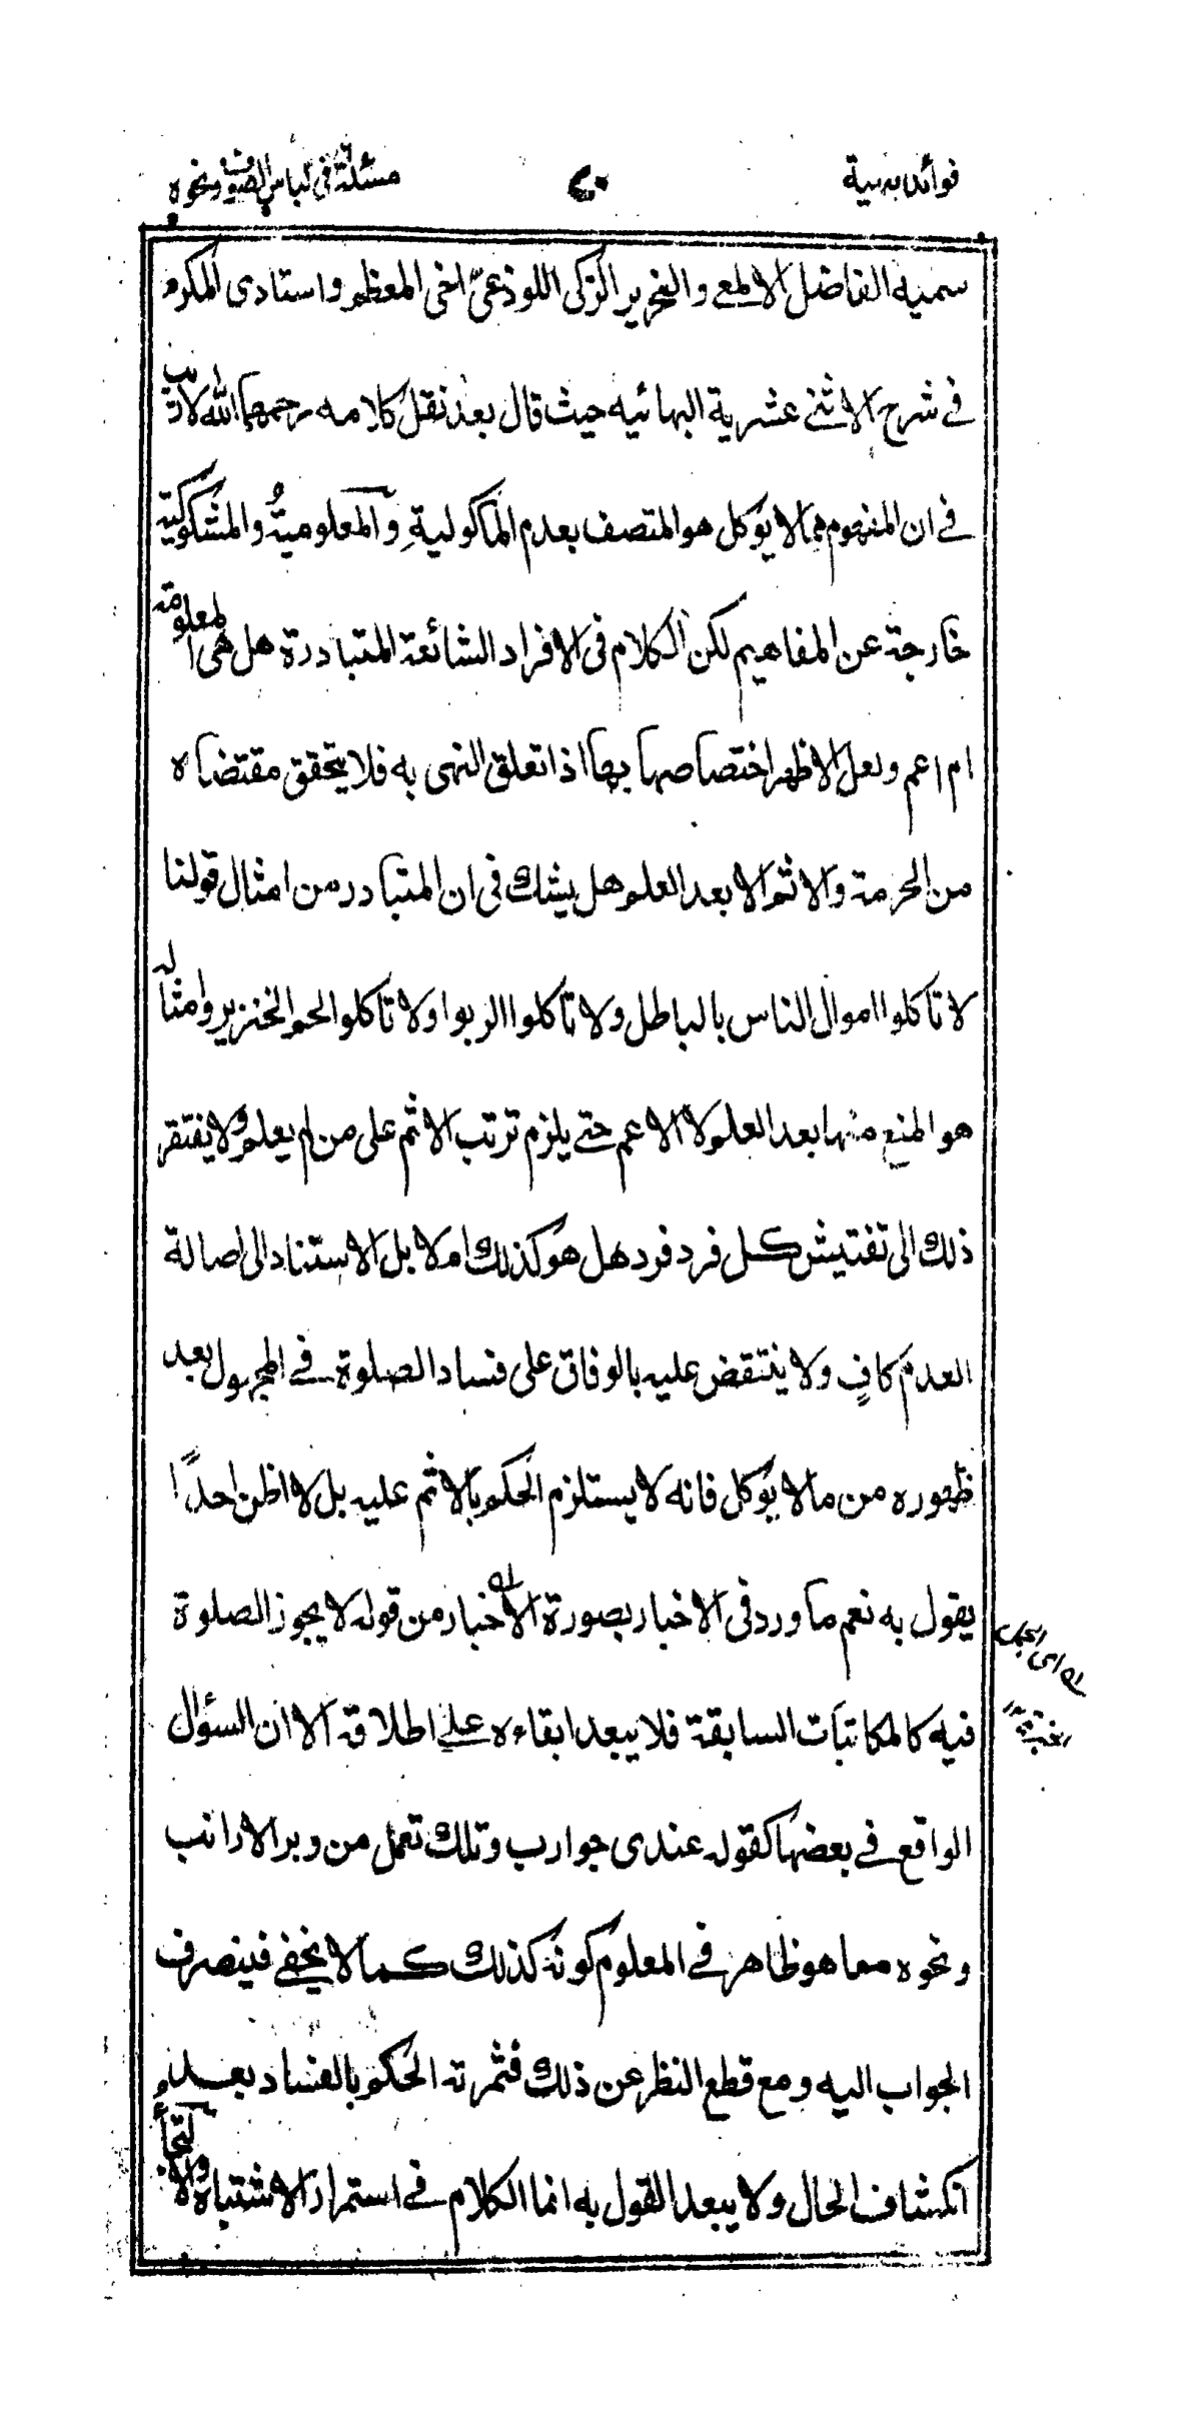 فوائد بهية
مسئلة فى لباس الصوف ونحوه
سميه الفاضل الالمعى والنحرير الزكى اللوذعىّ اخى المعظم واستادى المكرم
فى شرح الاثنى عشرية البهائيه حيث قال بعد نقل كلامه رحمهما الله لا ريب
فى ان المفهوم مما لا يؤكل هو المتصف بعدم المأكوليةِ والمعلوميةُ والمشكوكية
خارجة عن المفاهيم لكن الكلام فى الافراد الشائعة المتبادرة هل هى المعلومة
ام اعم ولعل الاظهر اختصاصها بها اذا تعلق النهى به فلا يتحقق مقتضاه
من الحرمة والاثم الا بعد العلم هل يشك فى ان المتبادر من امثال قولنا
لا تاكلوا اموال الناس بالباطل ولا تاكلوا الربوا ولا تاكلوا لحم الخنزير وامثاله
هو المنع منها بعد العلم لا الاعم حتى يلزم ترتب الاثم على من لم يعلم ولا يفتقر
ذلك الى تفتيش كل فرد فرد هل هو كذلك ام لا بل الاستناد الى اصالة
العدم كافٍ ولا ينتقض عليه بالوفاق على فساد الصلوة فى المجهول بعد
ظهوره من ما لا يؤكل فانه لا يستلزم الحكم بالاثم عليه بل لا اظن احدًا
يقول به نعم ما ورد فى الاخبار بصورة الاخبار من قوله لا يجوز الصلوة
فيه كالمكاتبات السابقة فلا يبعد ابقاءه على اطلاقه الا ان السؤال
الواقع فى بعضها كقوله عندى جوارب وتكك تعمل من وبر الارانب
ونحوه مما هو ظاهر فى المعلوم كونه كذلك كما لا يخفى فينصرف
الجواب اليه ومع قطع النظر عن ذلك فثمرته الحكم بالفساد بعد
انكشاف الحال ولا يبعد القول به انما الكلام فى استمرار الاشتباه